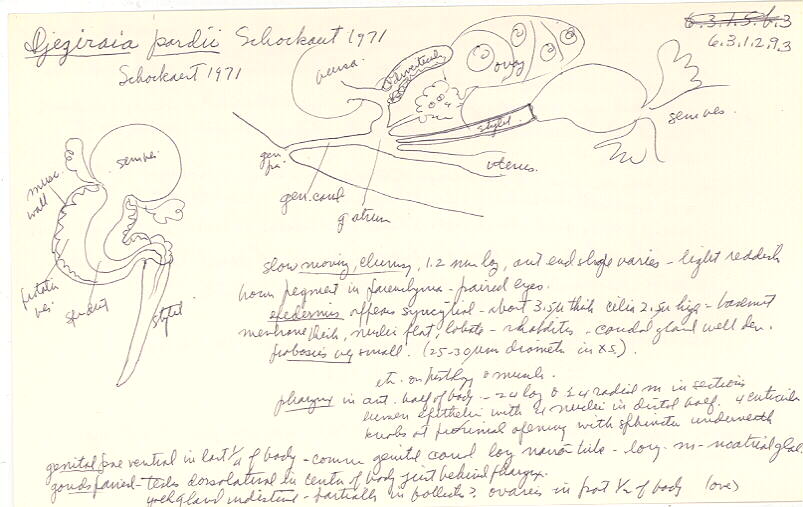 Djeziraia pardii Schockaert 1971
Schockaert 1971
6.3.1.5.6.3
6.3.1.2.9.3
bursa
diverticulum
ovary
stylet
sem ves.
gen po.
gen. canal
g atrium
uterus.
sem ves.
musc. wall
prostatic ves.
sp duct
stylet
slow moving, clumsy, 1.2 mm lg, ant end shape varies - light reddish
brown pigment in parenchyma - paired eyes.
epidermis appears syncytial - about 3.5µ thick cilia 2.5µ high - basement
membrane thick, nuclei flat, lobate - rhabdites - caudal gland well dev.
proboscis very small. (25-30µm diameter in XS).
muscle.
pharynx in ant. half of body - 24 lg & 24 radial m in sections
lumen epithelium with 4 nuclei in distal half. 4 cuticular
knobs at proximal opening with sphincter underneath
genital pore ventral in last 1/4 of body - common genital canal long narrow tube - long. m - no atrial glands
gonads paired - testes dorsolateral in center of body just behind pharynx.
yolk gland indistinct - partially in follicles? ovaries in post 1/2 of body (over)